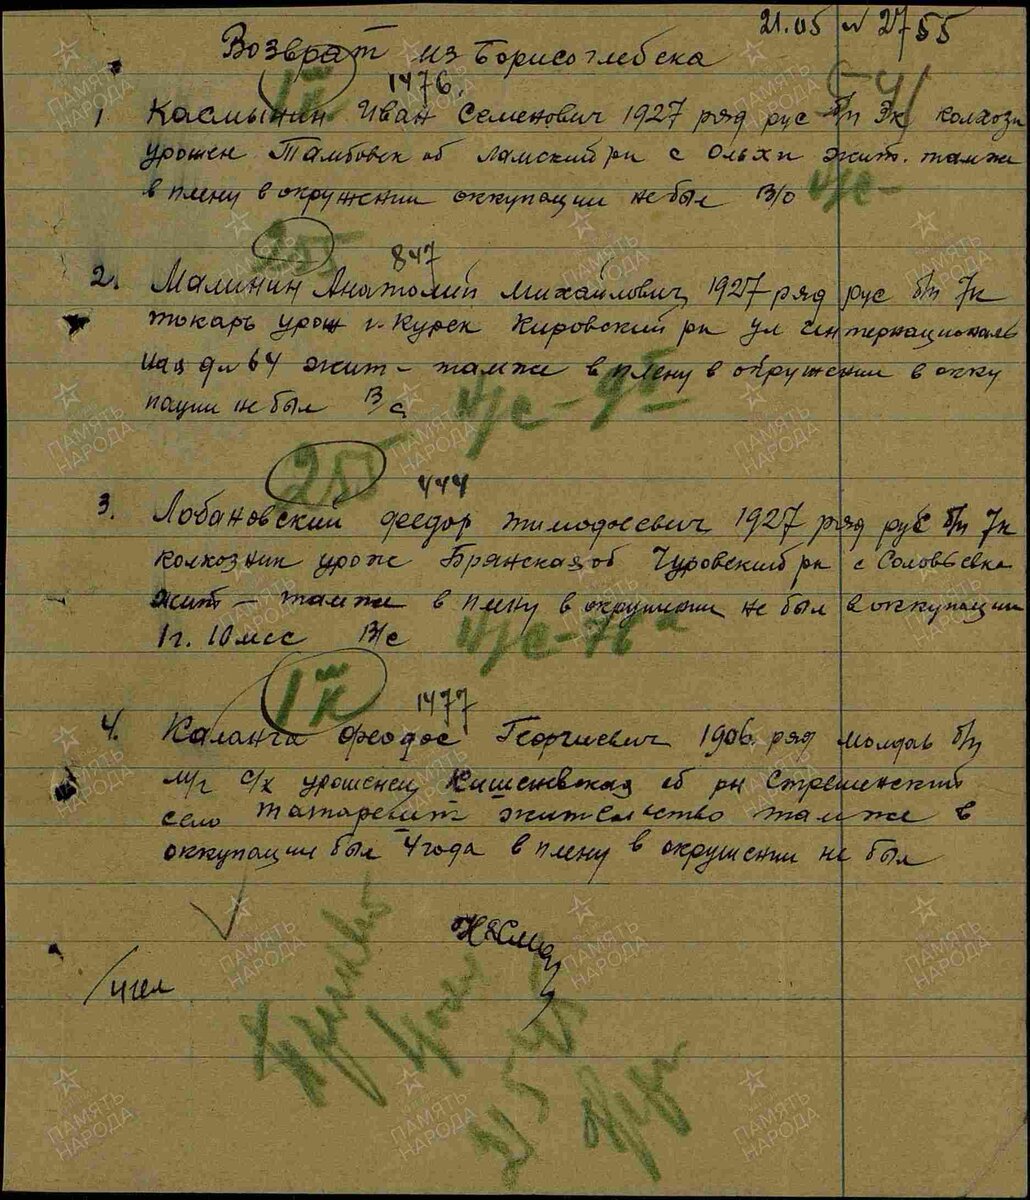 21.05 № 2755
Возврат из Борисоглебска
1 к
1476.
1 Касмынин Иван Семенович 1927 ряд рус б/п 3к колхозн
урожен Тамбовск об Ламский рн с Ольхи жит. там же
в плену в окружении оккупации не был В/о н/с -
255
847
2. Малинин Анатолий Михайлович 1927 ряд рус б/п 7к
токарь урож г. Курск Кировский рн ул Интернациональ
ная д № 64 жит - там же в плену в окружении в окку
пации не был В/с н/с - 9б
255
444
3. Лобановский Федор Тимофеевич 1927 ряд рус б/п 7к
колхозник урож Брянская об Чуровский рн с Соловьевка
жит - там же в плену в окружении не был в оккупации
1 г. 10 мес В/с н/с - 76
1 к
1477
4. Каланга Феодос Георгиевич 1906 ряд молдав б/п
м/г с/х уроженец Кишеневская об рн Страшенский
село Татарешт жительство там же в
оккупации был 4 года в плену в окружении не был
4 чел
21 5 45
ПАМЯТЬ НАРОДА